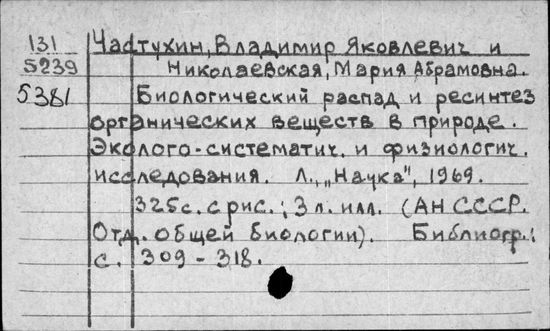 131 Частухин, Владимир Яковлевич и
5239 Николаевская, Мария Абрамовна.
5381 Биологический распад и ресинтез
органических веществ в природе.
Эколого-систематич. и физиологич.
исследования. Л., „Наука", 1969.
325с. с рис.; 3 л. илл. (АН СССР.
Отд. общей биологии). Библиогр.:
с. 309-318.